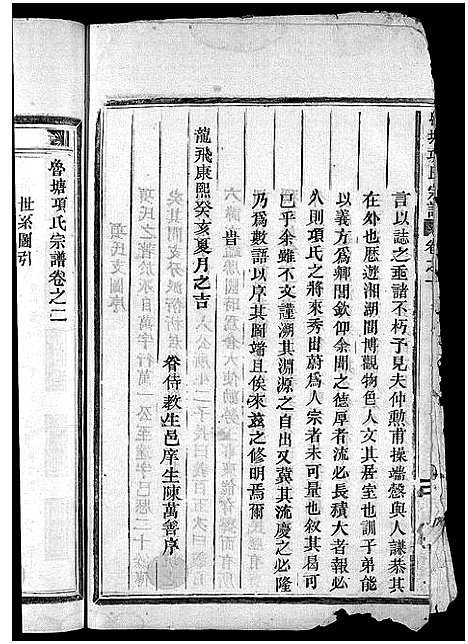 魯塘項氏宗譜 卷之一
言以誌之垂諸不朽予見夫仲勲甫操端慤與人謙恭其
在外也歴遊湘湖間博觀物色人文其居室也訓子弟能
以義方爲鄉閭欽仰余聞之德厚者流必長積大者報必
久則項氏之將來秀甾蔚爲人宗者未可量也叙其曷可
已乎余雖不文謹溯其淵源之自出又冀其流慶之必隆
乃爲數語以序其圖端且俟來兹之修明焉爾
旹
龍飛康熙癸亥夏月之吉
眷侍教生邑庠生陳萬善序
魯塘項氏宗譜卷之二
世系圖引
項氏支圖序